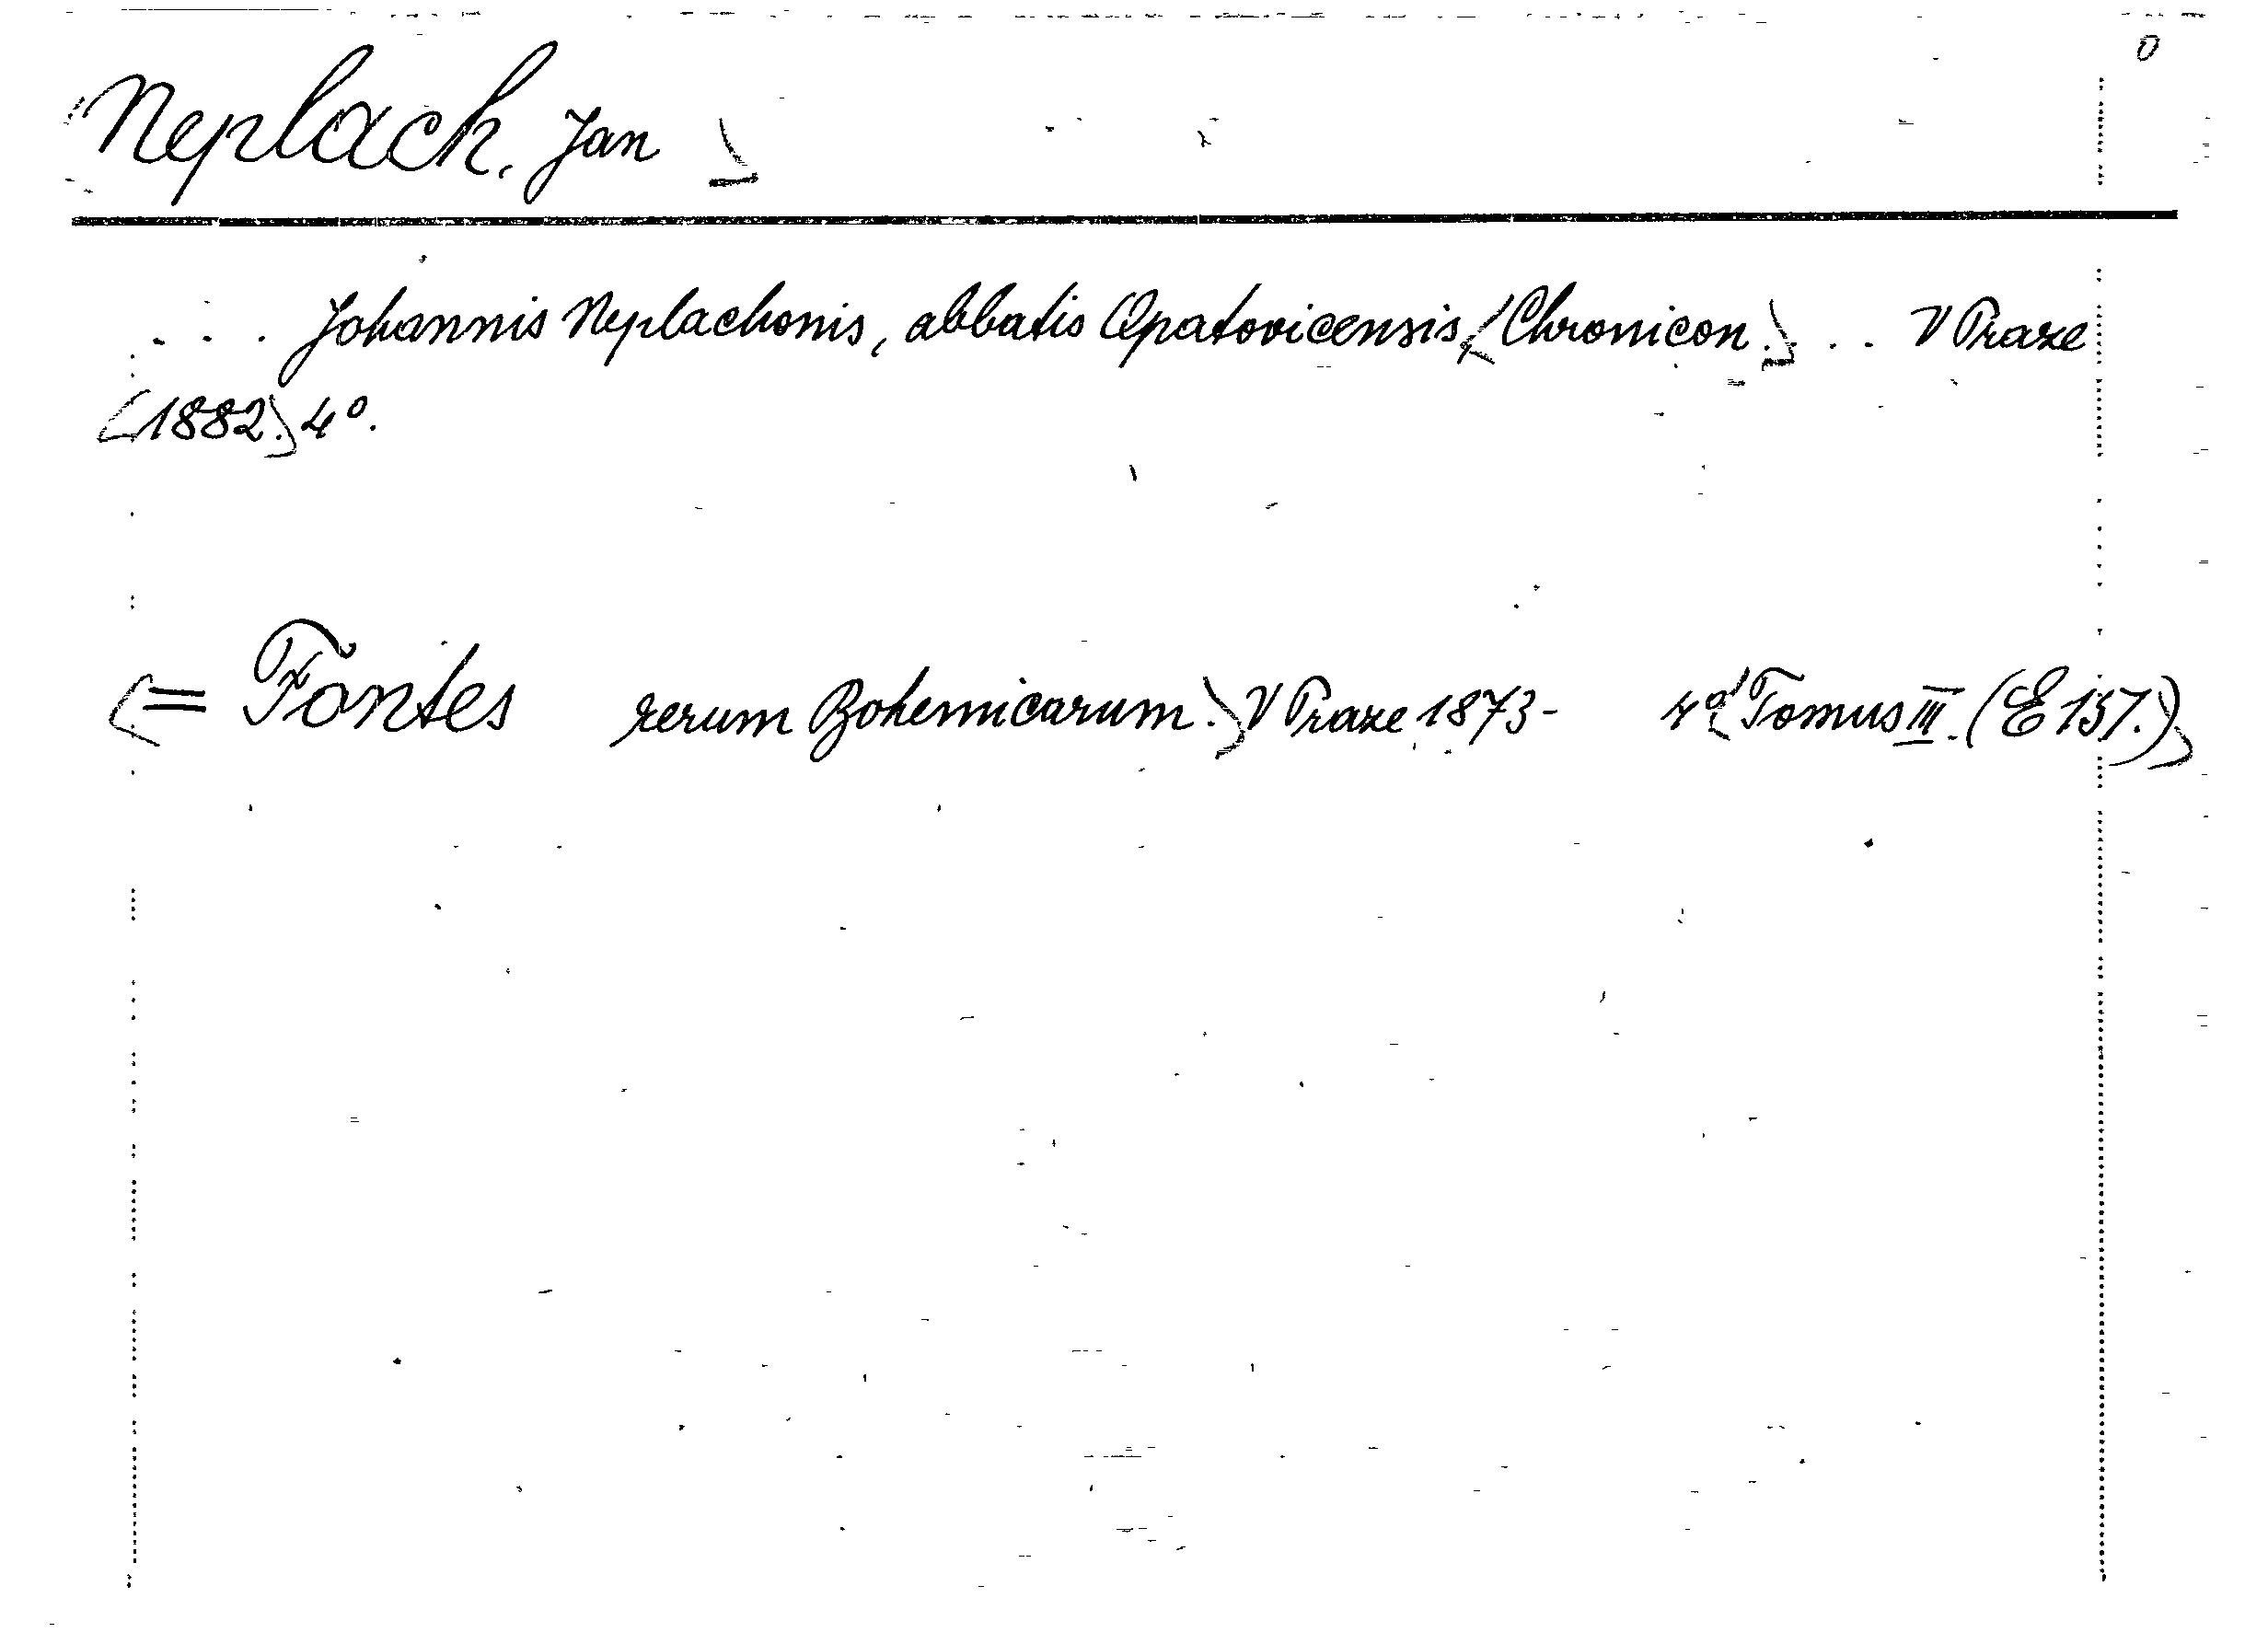 0
Neplach, Jan
... Johannis Neplachonis, abbatis Opatovicensis, Chronicon. ... V Praze
1882. 4°.
= Fontes rerum Bohemicarum. V Praze 1873- 4° Tomus III. (E 157.)